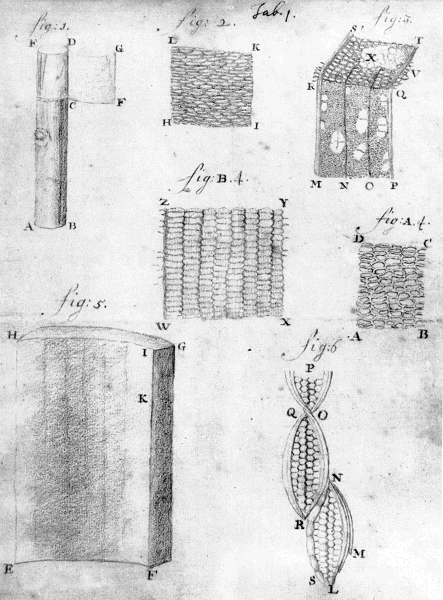 Tab. 1.
fig: 1.
F D G
C F
A B
fig: 2.
L K
H I
fig: 3.
S T
X
K V
Q
M N O P
fig: B. 4.
Z Y
W X
fig: A. 4.
D C
A B
fig: 5.
H I G
K
E F
fig: 6
P
Q O
N
R
M
S L